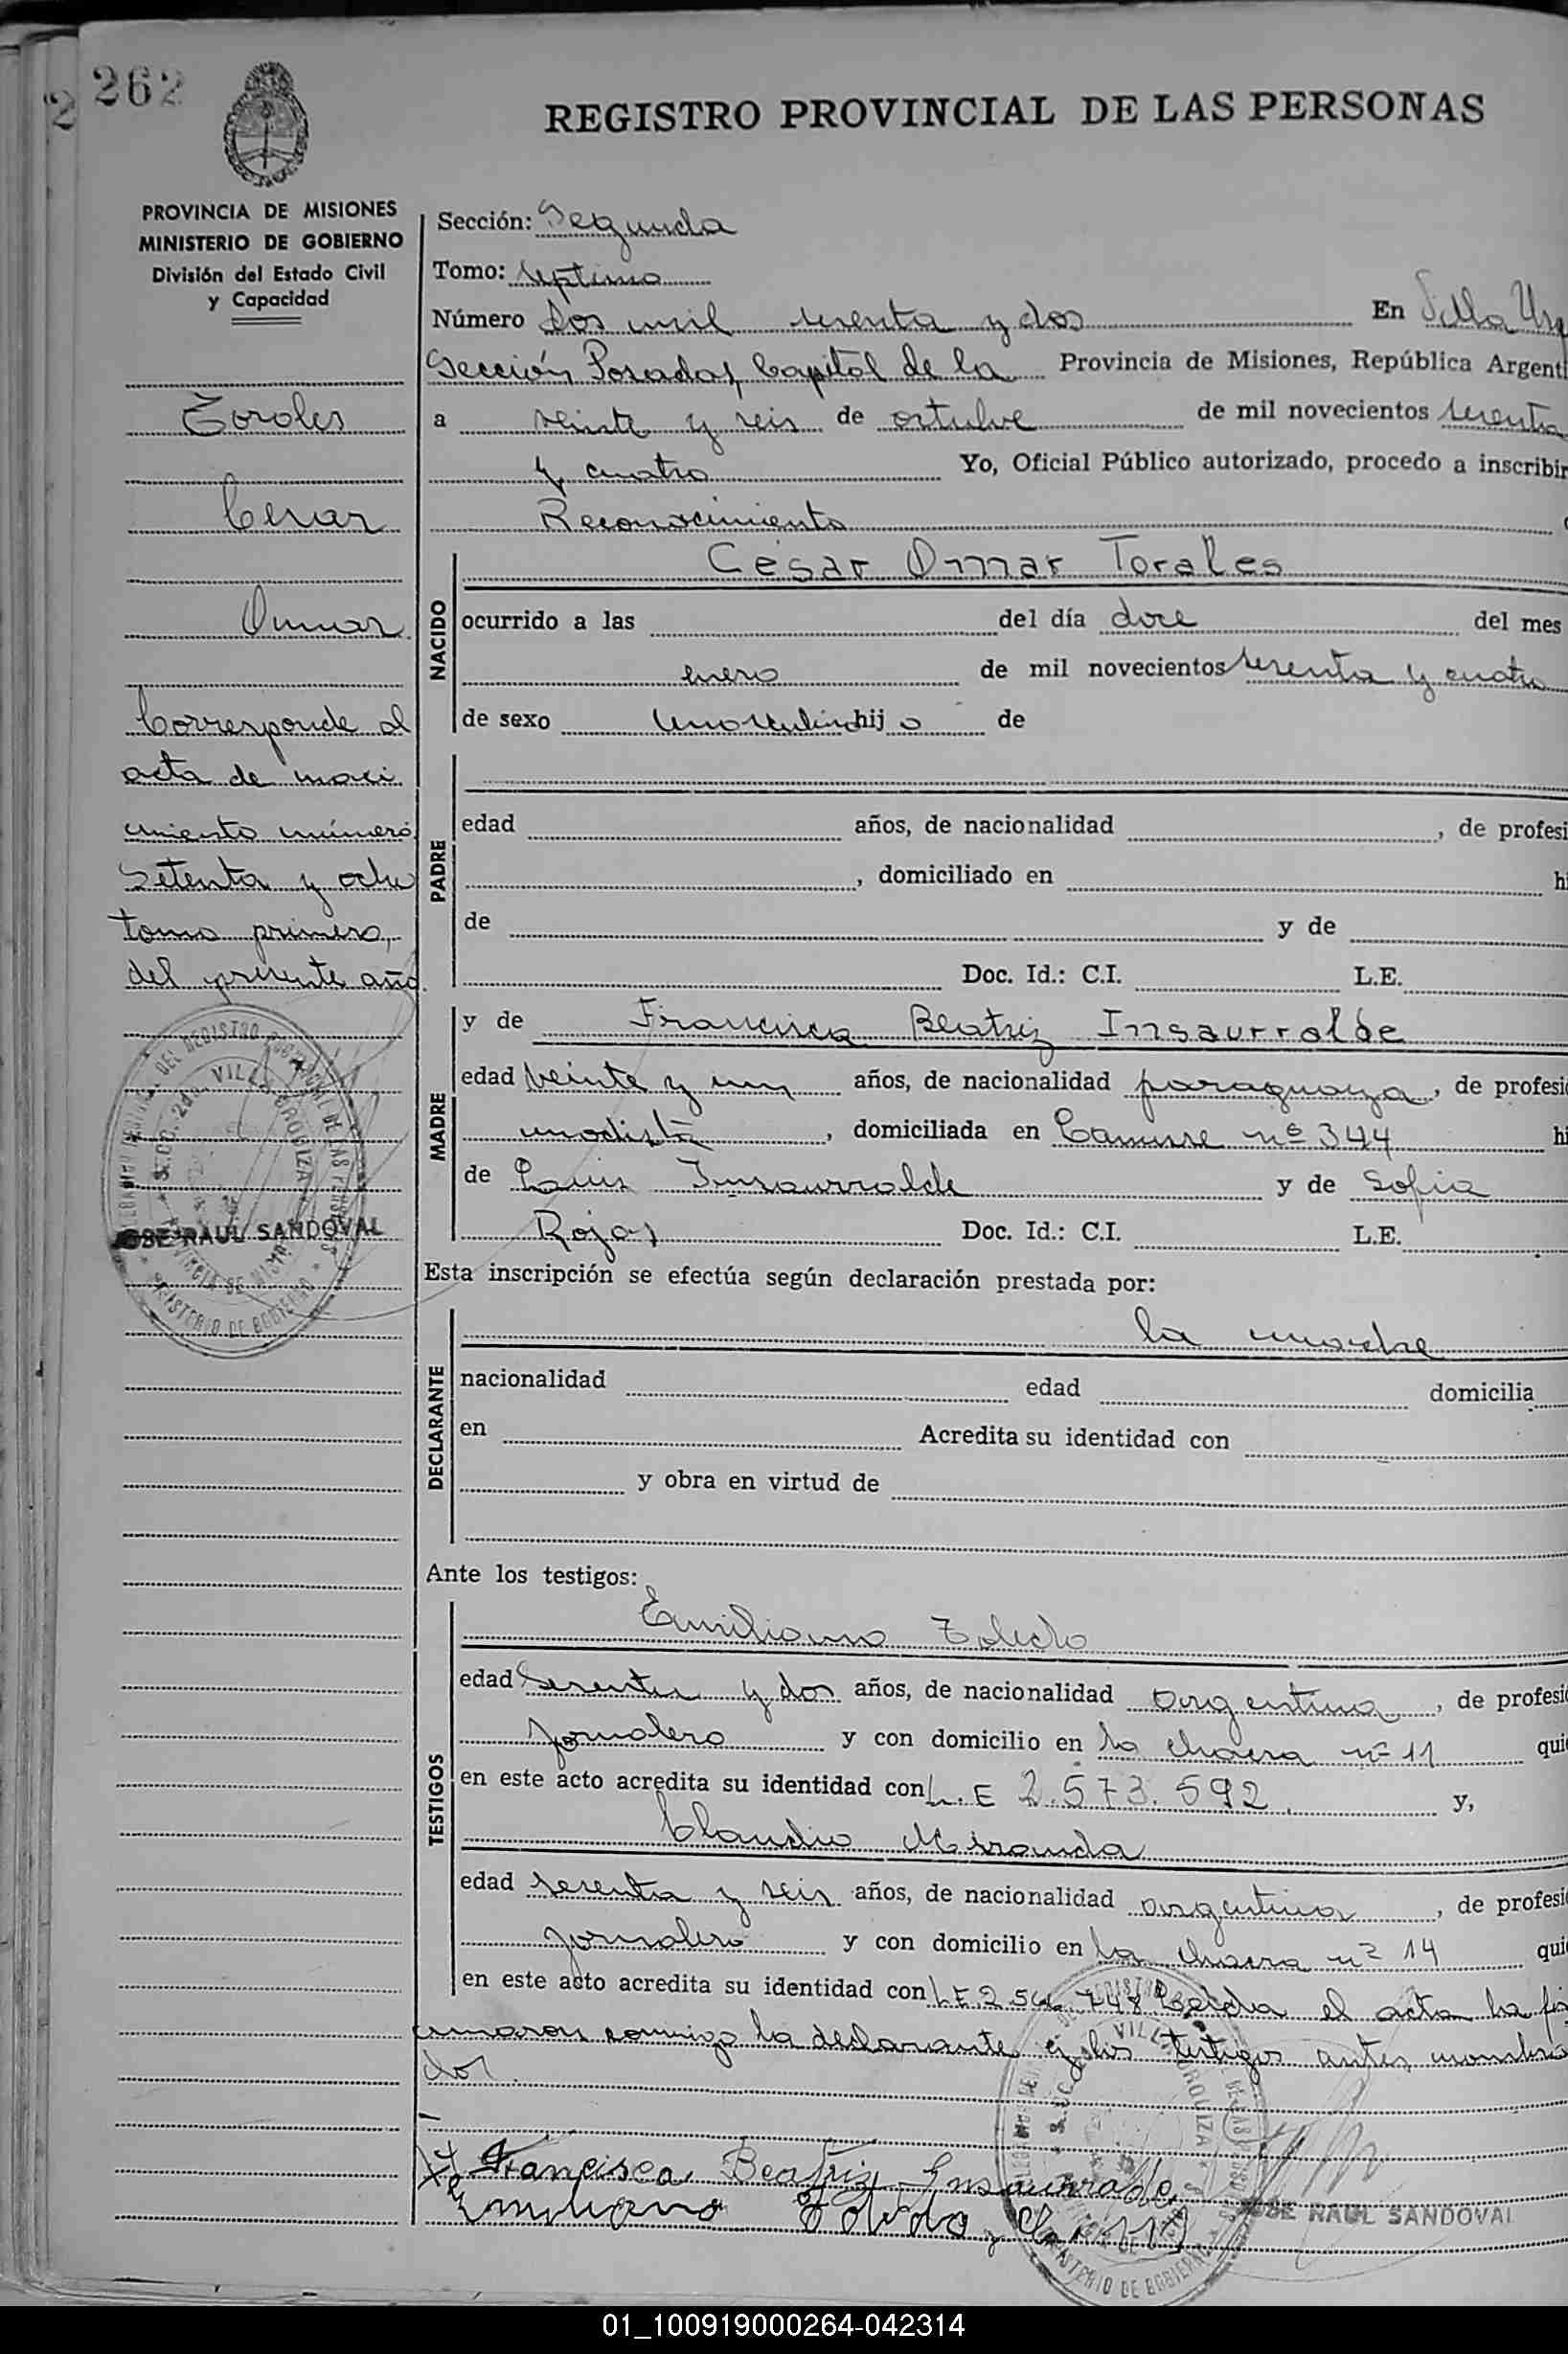 262
REGISTRO PROVINCIAL DE LAS PERSONAS
PROVINCIA DE MISIONES
MINISTERIO DE GOBIERNO
División del Estado Civil
y Capacidad
Torales
Cesar
Omar
Corresponde al
acta de naci
miento número
Setenta y ocho
tomo primero,
del presente año
JOSE RAUL SANDOVAL
Sección: Segunda
Tomo: septimo
Número Dos mil sesenta y dos En Villa Urq
Sección Posadas Capital de la Provincia de Misiones, República Argenti
a veinte y seis de octubre de mil novecientos sesenta
y cuatro Yo, Oficial Público autorizado, procedo a inscribir
Reconocimiento
NACIDO
César Omar Torales
ocurrido a las del día doce del mes
enero de mil novecientos sesenta y cuatro
de sexo masculino hijo de
PADRE
edad años, de nacionalidad , de profesi
, domiciliado en hi
de y de
Doc. Id.: C.I. L.E.
MADRE
y de Francisca Beatriz Insaurralde
edad veinte y un años, de nacionalidad paraguaya, de profesi
modista, domiciliada en nº 344 hi
de Luis Insaurralde y de Sofia
Rojas Doc. Id.: C.I. L.E.
Esta inscripción se efectúa según declaración prestada por:
DECLARANTE
la madre
nacionalidad edad domicilia
en Acredita su identidad con
y obra en virtud de
Ante los testigos:
TESTIGOS
Emiliano Toledo
edad sesenta y dos años, de nacionalidad argentina, de profesi
jornalero y con domicilio en la chacra nº 11 qui
en este acto acredita su identidad con L.E 2.573.592 y,
Claudio Miranda
edad sesenta y seis años, de nacionalidad argentina, de profesi
jornalero y con domicilio en la chacra nº 14 qui
en este acto acredita su identidad con L.E. 2 748 Leida el acta la fir
maron conmigo la declarante y los testigos antes nombra
dos
Francisca Beatriz Insaurralde
Emiliano Toledo
JOSE RAUL SANDOVAL
01_100919000264-042314